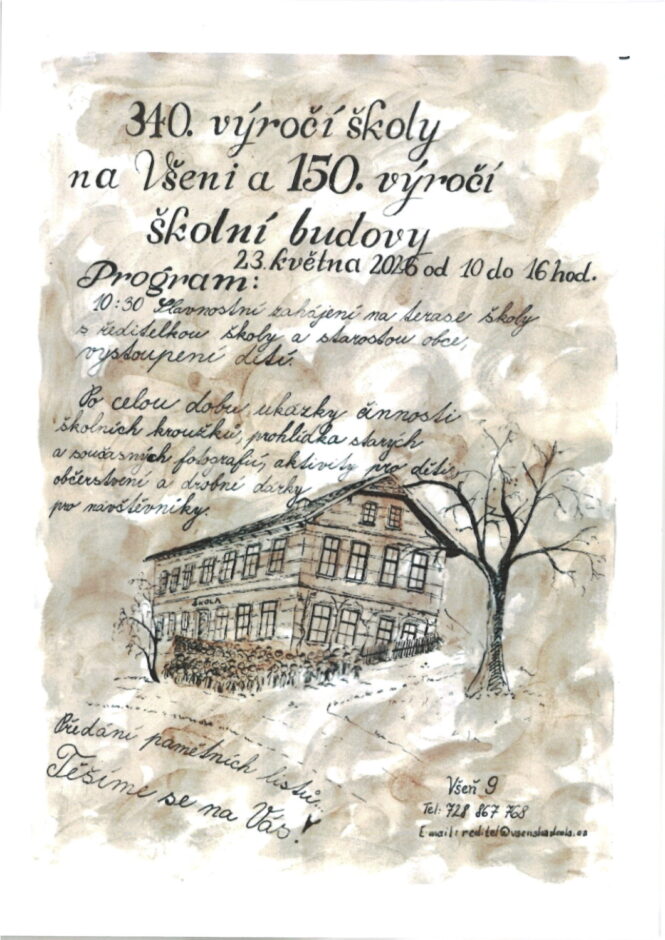 340. výročí školy
na Všeni a 150. výročí
školní budovy
23. května 2026 od 10 do 16 hod.
Program:
10:30 Slavnostní zahájení na terase školy
s ředitelkou školy a starostou obce,
vystoupení dětí.
Po celou dobu ukázky činnosti
školních kroužků, prohlídka starých
a současných fotografií, aktivity pro děti,
občerstvení a drobné dárky
pro návštěvníky.
ŠKOLA
Předání pamětních listů...
Těšíme se na Vás!
Všeň 9
Tel: 728 867 768
E-mail: reditel@vsenskaskola.cz